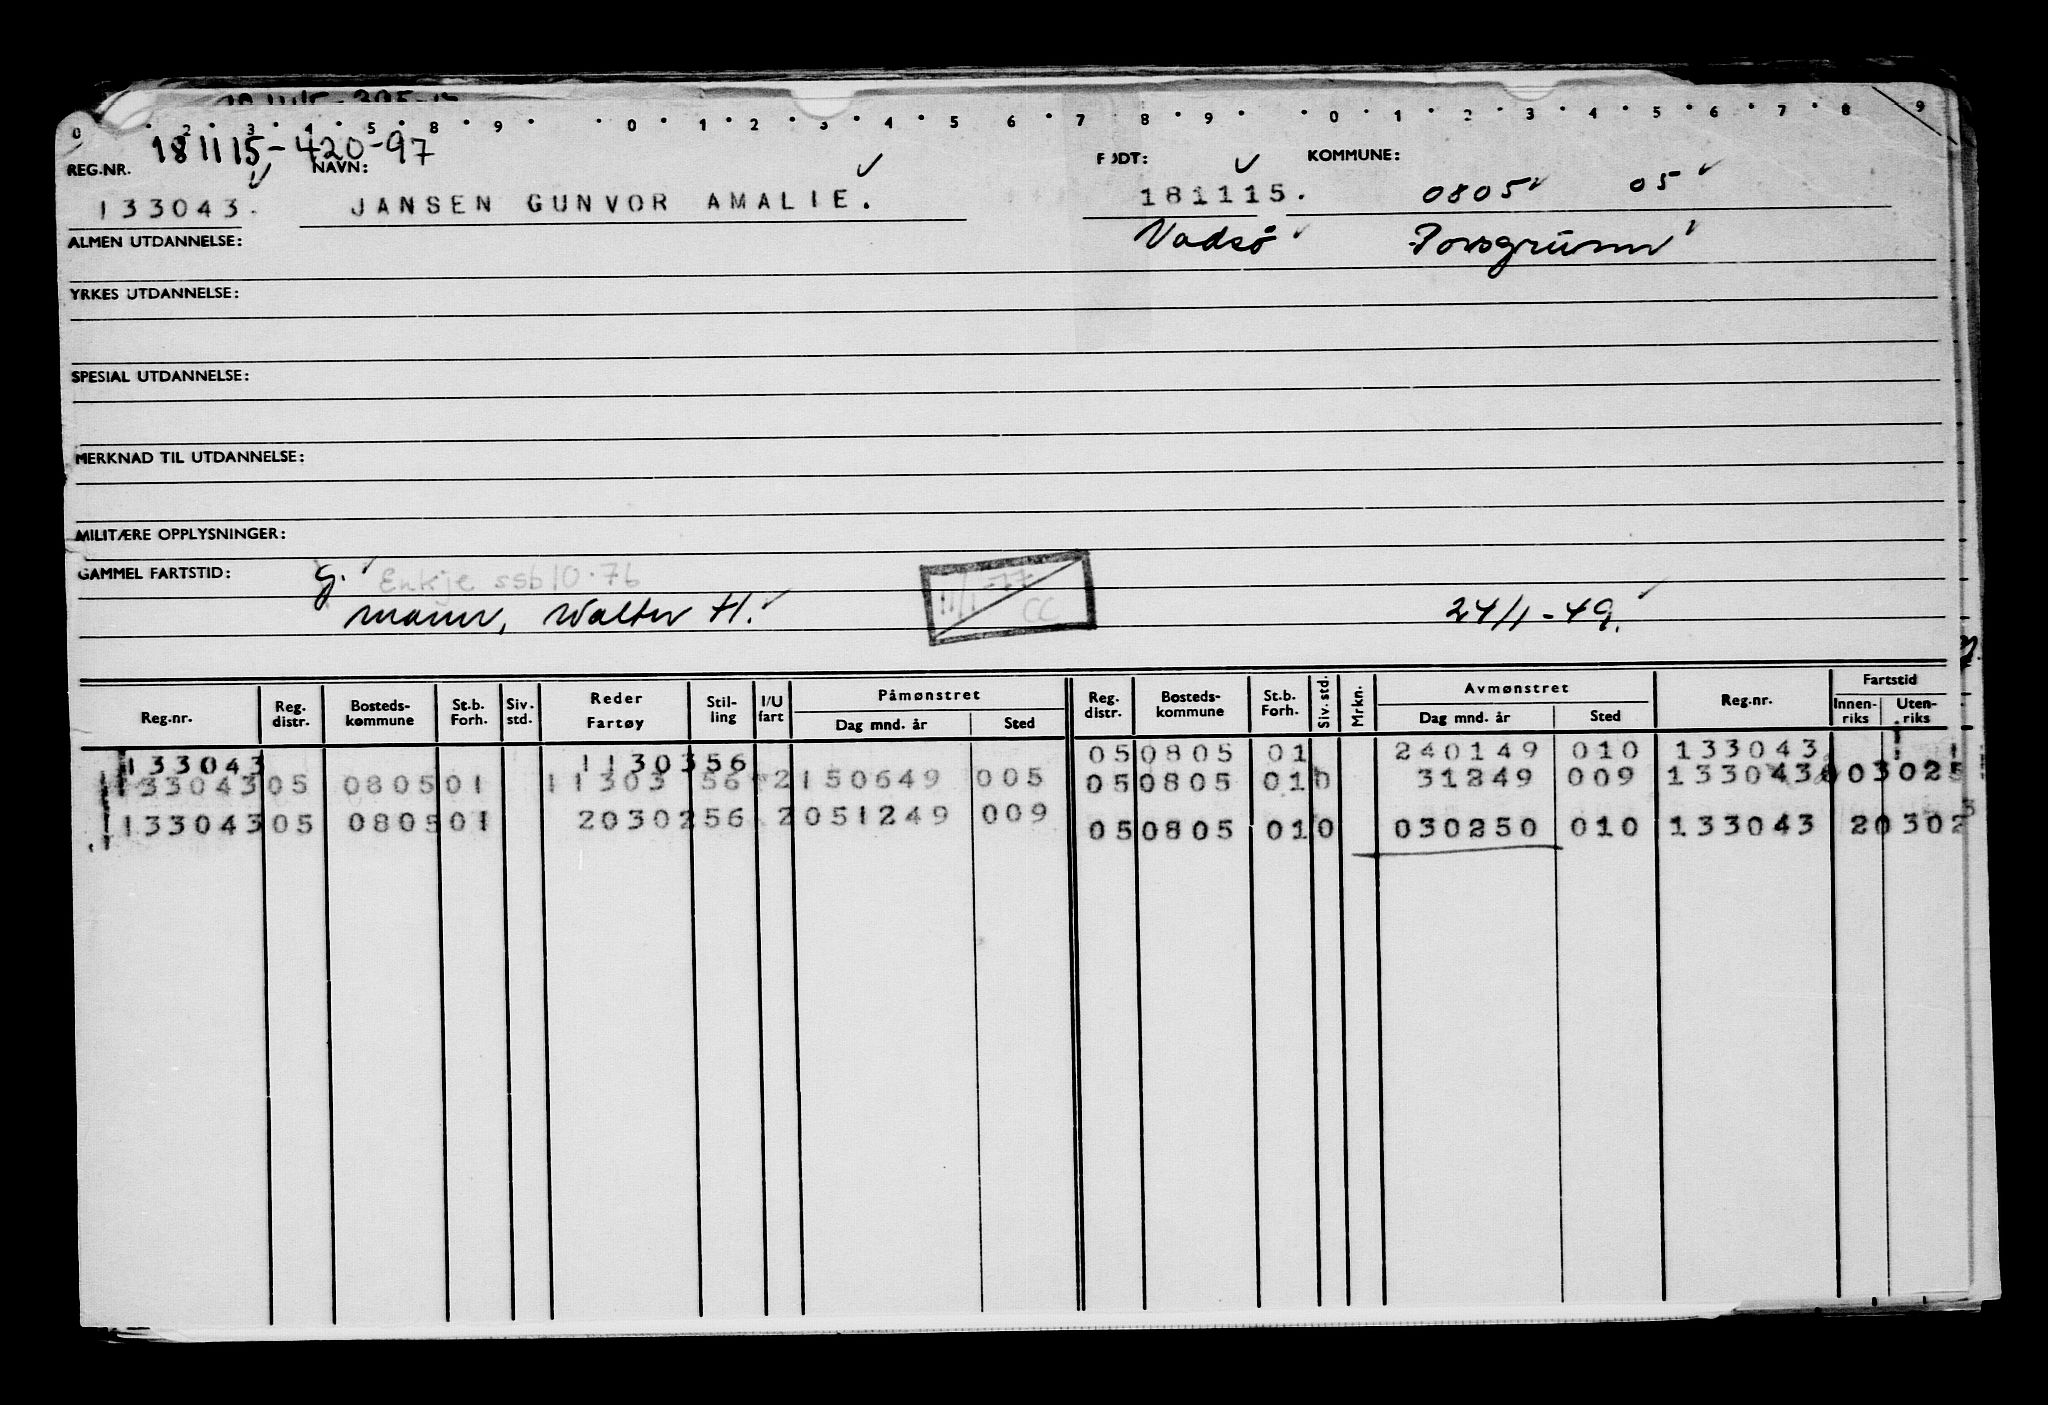 0 2 3 4 5 8 9 0 1 2 3 4 5 6 7 8 9 0 1 2 3 4 5 6 7 8 9
181115-420-97
REG.NR. NAVN: FØDT: KOMMUNE:
133043. JANSEN GUNVOR AMALIE. 181115. 0805 05
ALMEN UTDANNELSE: Vadsø Porsgrunn
YRKES UTDANNELSE:
SPESIAL UTDANNELSE:
MERKNAD TIL UTDANNELSE:
MILITÆRE OPPLYSNINGER:
GAMMEL FARTSTID: g. Enkje ssb 10.76 11/1-77
mann, Walter H. CC 24/1-49.
Reg.nr. Reg. distr. Bosteds-kommune St.b. Forh. Siv. std. Reder Fartøy Stil-ling I/U fart Påmønstret Dag mnd. år Sted Reg. distr. Bosteds-kommune St.b. Forh. Siv. std. Mrkn. Avmønstret Dag mnd. år Sted Reg.nr. Fartstid Innen-riks Uten-riks
133043 11303 56 05 0805 01 240149 010 133043
133043 05 0805 01 11303 56 2 150649 005 05 0805 01 0 31249 009 133043 003025
133043 05 0805 01 20302 56 2 051249 009 05 0805 01 0 030250 010 133043 20302